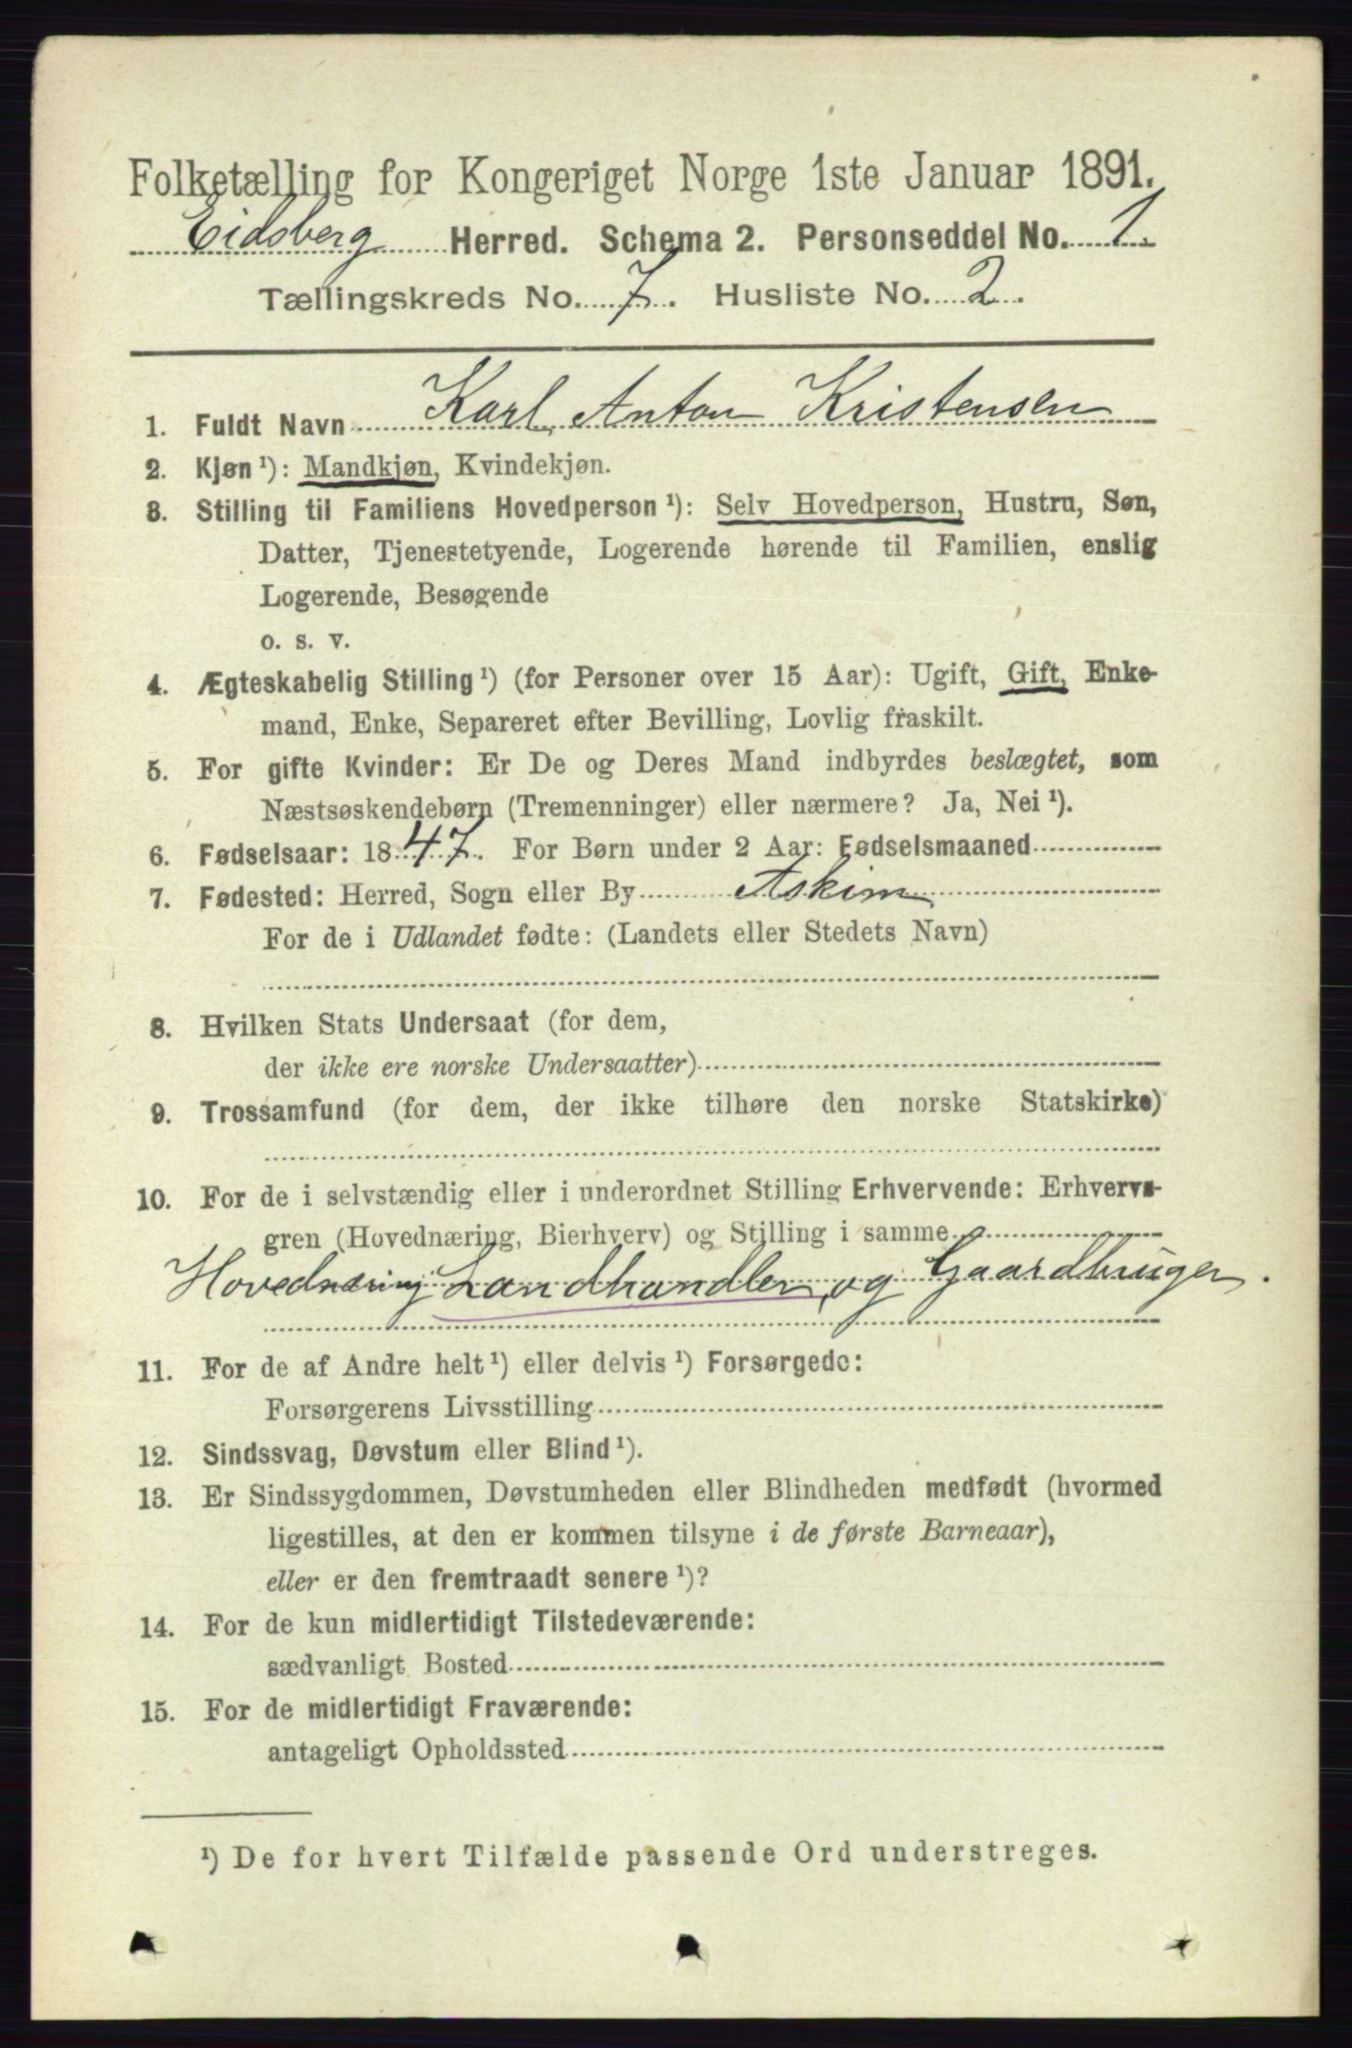 Folketælling for Kongeriget Norge 1ste Januar 1891.
Eidsberg Herred. Schema 2. Personseddel No. 1.
Tællingskreds No. 7. Husliste No. 2.
1. Fuldt Navn Karl Anton Kristensen
2. Kjøn ¹): Mandkjøn, Kvindekjøn.
3. Stilling til Familiens Hovedperson ¹): Selv Hovedperson, Hustru, Søn,
Datter, Tjenestetyende, Logerende hørende til Familien, enslig
Logerende, Besøgende
o. s. v.
4. Ægteskabelig Stilling ¹) (for Personer over 15 Aar): Ugift, Gift, Enke-
mand, Enke, Separeret efter Bevilling, Lovlig fraskilt.
5. For gifte Kvinder: Er De og Deres Mand indbyrdes beslægtet, som
Næstsøskendebørn (Tremenninger) eller nærmere? Ja, Nei ¹).
6. Fødselsaar: 1847. For Børn under 2 Aar: Fødselsmaaned
7. Fødested: Herred, Sogn eller By Askim
For de i Udlandet fødte: (Landets eller Stedets Navn)
8. Hvilken Stats Undersaat (for dem,
der ikke ere norske Undersaatter)
9. Trossamfund (for dem, der ikke tilhøre den norske Statskirke)
10. For de i selvstændig eller i underordnet Stilling Erhvervende: Erhvervs-
gren (Hovednæring, Bierhverv) og Stilling i samme
Hovednæring Landhandler, og Gaardbruger.
11. For de af Andre helt ¹) eller delvis ¹) Forsørgede:
Forsørgerens Livsstilling
12. Sindssvag, Døvstum eller Blind ¹).
13. Er Sindssygdommen, Døvstumheden eller Blindheden medfødt (hvormed
ligestilles, at den er kommen tilsyne i de første Barneaar),
eller er den fremtraadt senere ¹)?
14. For de kun midlertidigt Tilstedeværende:
sædvanligt Bosted
15. For de midlertidigt Fraværende:
antageligt Opholdssted
¹) De for hvert Tilfælde passende Ord understreges.